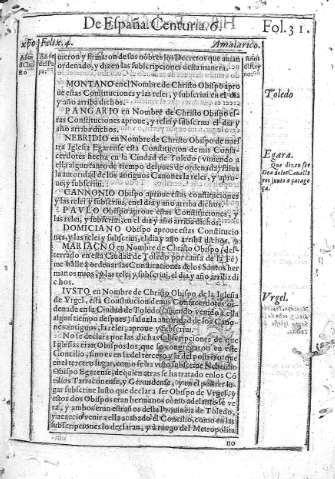 De España. Centuria. 6.
Fol. 31.
xpo Felix. 4.
Amalarico.
ordenado, y dizen las Subscripciones desta manera.
MONTANO en el Nombre de Christo Obispo apro
ue estas Constituciones y las relei, y subscriui en el dia
y año arriba dichos.
PANGARIO en Nombre de Christo Obispo es
tas Constituciones aproue, y relei y subscriui el dia y
año arriba dichos.
Toledo
NEBRIDIO en Nombre de Christo Obispo de nues
tra Iglesia Egarense esta Constitucion de mis Consa-
cerdotes hecha en la Ciudad de Toledo (viniendo a
ella algun tiempo despues de ordenada) salua
la autoridad de los antiguos Canones la relei, y apro-
ue y subscriui.
Egara.
CANNONIO Obispo aproue estas constituciones
y las relei y subscriui, en el dia y año arriba dichos.
PAVLO Obispo aproue estas Constituciones, y
las relei, y subscriui, el dia y año arriba dichos.
DOMICIANO Obispo aproue estas Constitucio-
nes, y las relei y subscriui, el dia y año arriba dichos.
MARIACNO en Nombre de Christo Obispo (des
terrado en esta Ciudad de Toledo por causa de la Fe)
me halle a ordenar las Constituciones de los Santos her
manos mios, y las relei, y subscriui, el dia y año arriba di
chos.
IVSTO en Nombre de Christo Obispo de la Iglesia
de Vrgel, esta Constitucion de mis Consacerdotes or-
denada en la Ciudad de Toledo, auiendo venido a ella
algun tiempo despues, salua la autoridad de los Cano
nes antiguos, la relei, aproue y subscriui.
Vrgel.
No se declara por las dichas Subscripciones de que
Iglesias eran Obispos los que se congregaron en este
Concilio, sino es en la del tercero, y la del postrero; que
en el tercero lugar, como se ha visto subscriue Nebridio
Obispo Egarense, de quien atras se ha tratado en los Co
cilios Tarraconense, y Gerundense, y en el postrer lu-
gar subscriue Iusto que declara ser Obispo de Vrgel, y
estos dos Obispos eran hermanos como adelante se ve
ra, y ambos eran estraños de la Prouincia de Toledo,
y a caso venir a ella acabado el Concilio, como en las
subscripciones lo declaran, y a ruego del Metropolita
no